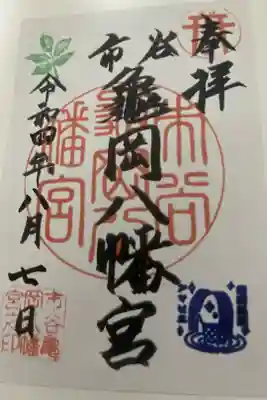 奉拝
市谷
亀岡八幡宮
令和四年八月七日
市谷亀岡八幡宮
市谷亀岡八幡宮之印